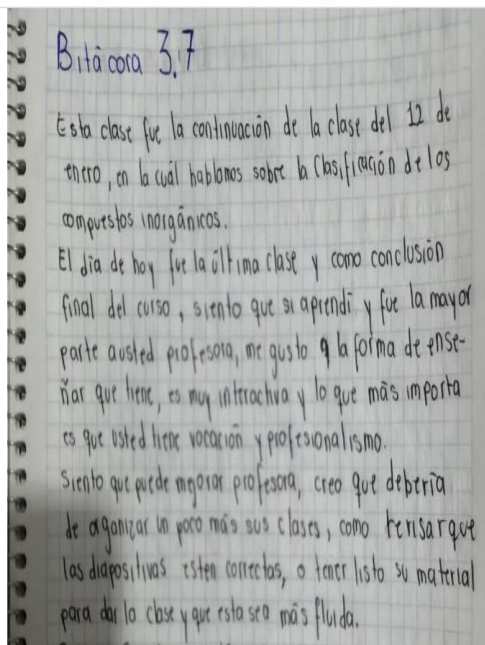 Bitácora 3.7
Esta clase fue la continuación de la clase del 12 de
enero, en la cuál hablamos sobre la Clasificación de los
compuestos inorgánicos.
El día de hoy fue la última clase y como conclusión
final del curso, siento que si aprendi y fue la mayor
parte austed profesora, me gusto la forma de ense-
ñar que tiene, es muy interactiva y lo que más importa
es que usted tiene vocación y profesionalismo.
Siento que puede mejorar profesora, creo que debería
de organizar un poco más sus clases, como revisar que
las diapositivas esten correctas, o tener listo su material
para dar la clase y que esta sea más fluida.